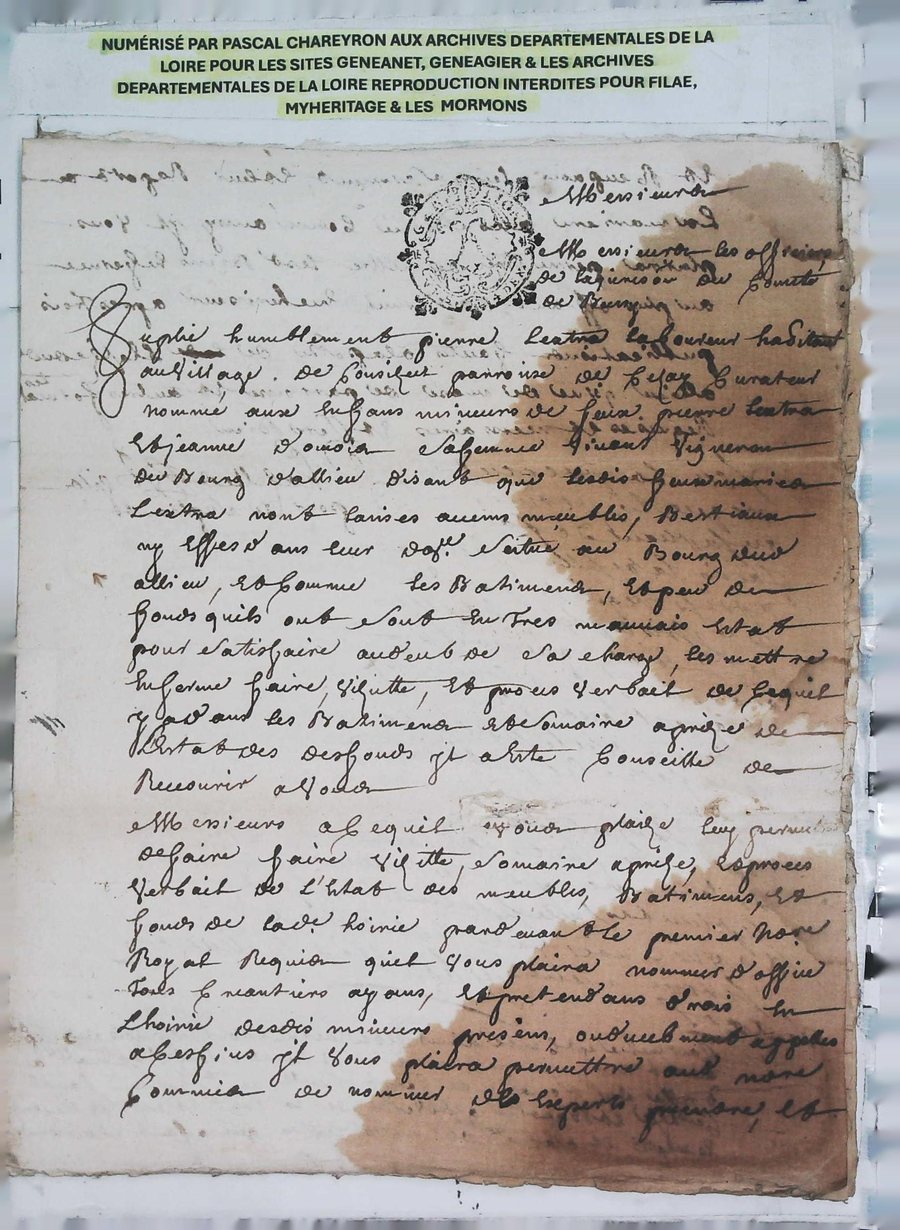 NUMÉRISÉ PAR PASCAL CHAREYRON AUX ARCHIVES DEPARTEMENTALES DE LA
LOIRE POUR LES SITES GENEANET, GENEAGIER & LES ARCHIVES
DEPARTEMENTALES DE LA LOIRE REPRODUCTION INTERDITES POUR FILAE,
MYHERITAGE & LES MORMONS
Messieurs
Messieurs les officiers
de la jurison du Comtté
de
Suplie humblement pierre Lextra laboureur habitant
au Village de parroisse de Cezay Curateur
nomme aux Enfans mineurs de feux pierre Lextra
Et jeanne sa femme vivant Vigneron
du Bourg d'allieu disant que lesdis feux mariés
Lextra nont laisses aucuns meubles, Bestiaux
ny Effes dans leur situé au Bourg dud
allieu, Et Comme les Batimens, Et peu de
fonds quils ont sont En Tres mauvais Estat
pour satisfaire au deub de sa charge, les mettre
En ferme faire, Vizitte, Et proces verbait de Cequil
y a dans les Batimens Et somaire aprize de
L'Estat des desfonds jt a Este Conseille de
Recourir a Vous
Messieurs a Cequil vous plaize luy permettre
de faire faire Vizitte, somaire aprize, Et proces
Verbait de L'Estat des meubles, Batimens, Et
fonds de lade hoirie pardevant le premier Nore
Royal Requis quil Vous plaira nommer d'office
Tous Creantiers ayans, Et pretendans drois En
Lhoirie desdis mineurs presens, ou duement appelles
a Ces fins jt Vous plaira permettre aud nore
Commis de nommer des Experts prendre, Et